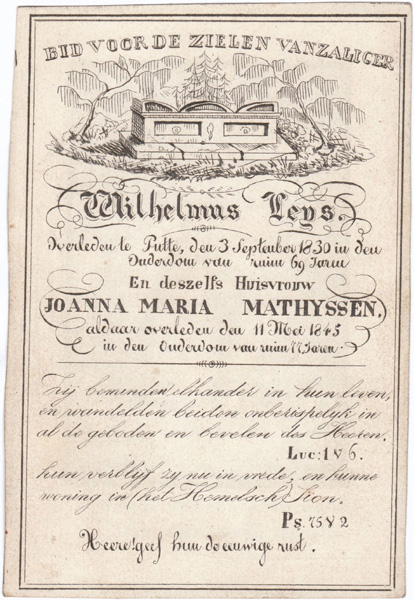 BID VOOR DE ZIELEN VAN ZALIGER
Wilhelmus Leys.
Overleden te Putte, den 3 September 1830 in den
Ouderdom van ruim 69 Jaren
En deszelfs Huisvrouw
JOANNA MARIA MATHYSSEN,
aldaar overleden den 11 Mei 1845
in den Ouderdom van ruim 77 Jaren.
Zij beminden elkander in hun leven,
en wandelden beiden onberispelyk in
al de geboden en bevelen des Heeren.
Luc: 1 v 6.
hun verblijf zy nu in vrede, en hunne
woning in (het Hemelsch) Sion.
Ps. 75 v 2
Heere! geef hun de eeuwige rust.